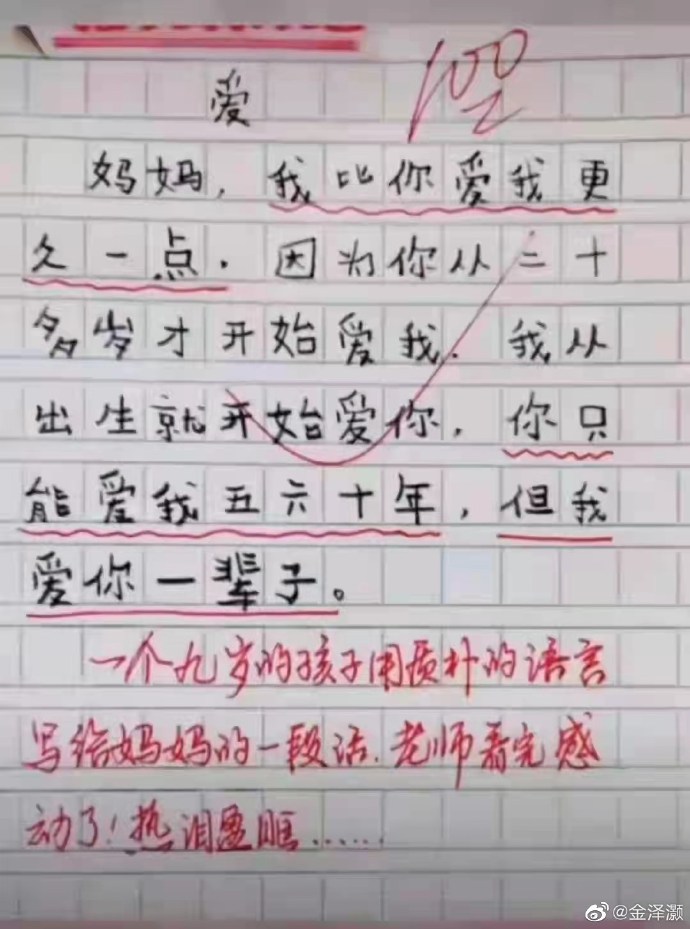 100
爱
妈妈，我比你爱我更
久一点．因为你从二十
多岁才开始爱我．我从
出生就开始爱你，你只
能爱我五六十年，但我
爱你一辈子。
一个九岁的孩子用质朴的语言
写给妈妈的一段话.老师看完感
动了！热泪盈眶......
@金泽灏